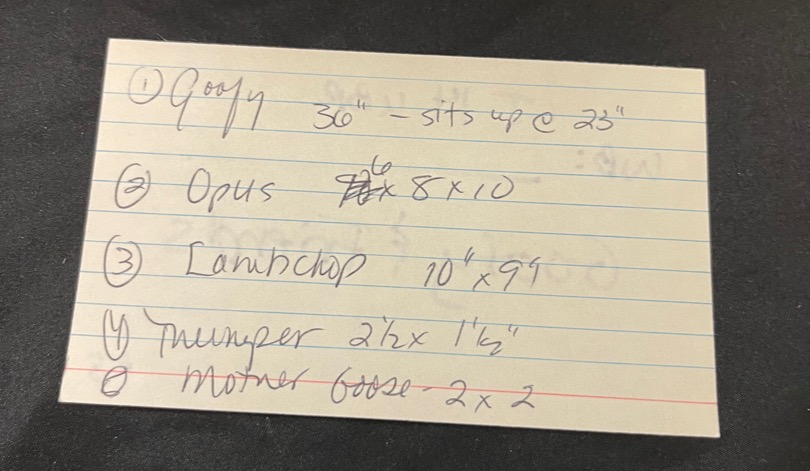 ① Goofy 36" - sits up @ 23"
② Opus 6 x 8 x 10
③ Lambchop 10" x 9"
④ Thumper 2 1/2 x 1 1/2"
Mother Goose - 2 x 2